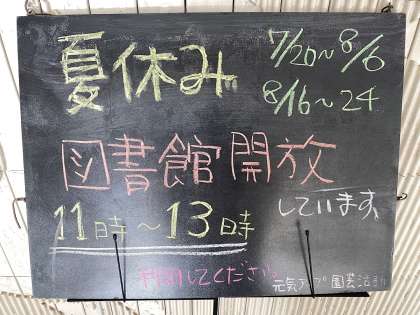 夏休み
7/20～8/6
8/16～24
図書館開放
しています
11時～13時
利用してください
元気アップ園芸活動